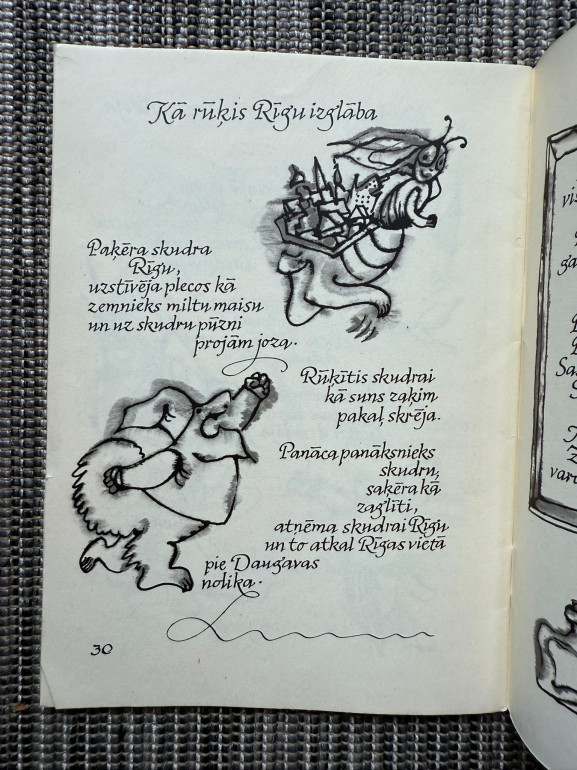 Kā rūķis Rīgu izglāba
Paķēra skudra
Rīgu,
uzstīvēja plecos kā
zemnieks miltu maisu
un uz skudru pūzni
projām joza.
Rūķītis skudrai
kā suns zaķim
pakaļ skrēja.
Panāca panāksnieks
skudru,
saķēra kā
zaglīti,
atņēma skudrai Rīgu
un to atkal Rīgas vietā
pie Daugavas
nolika.
30